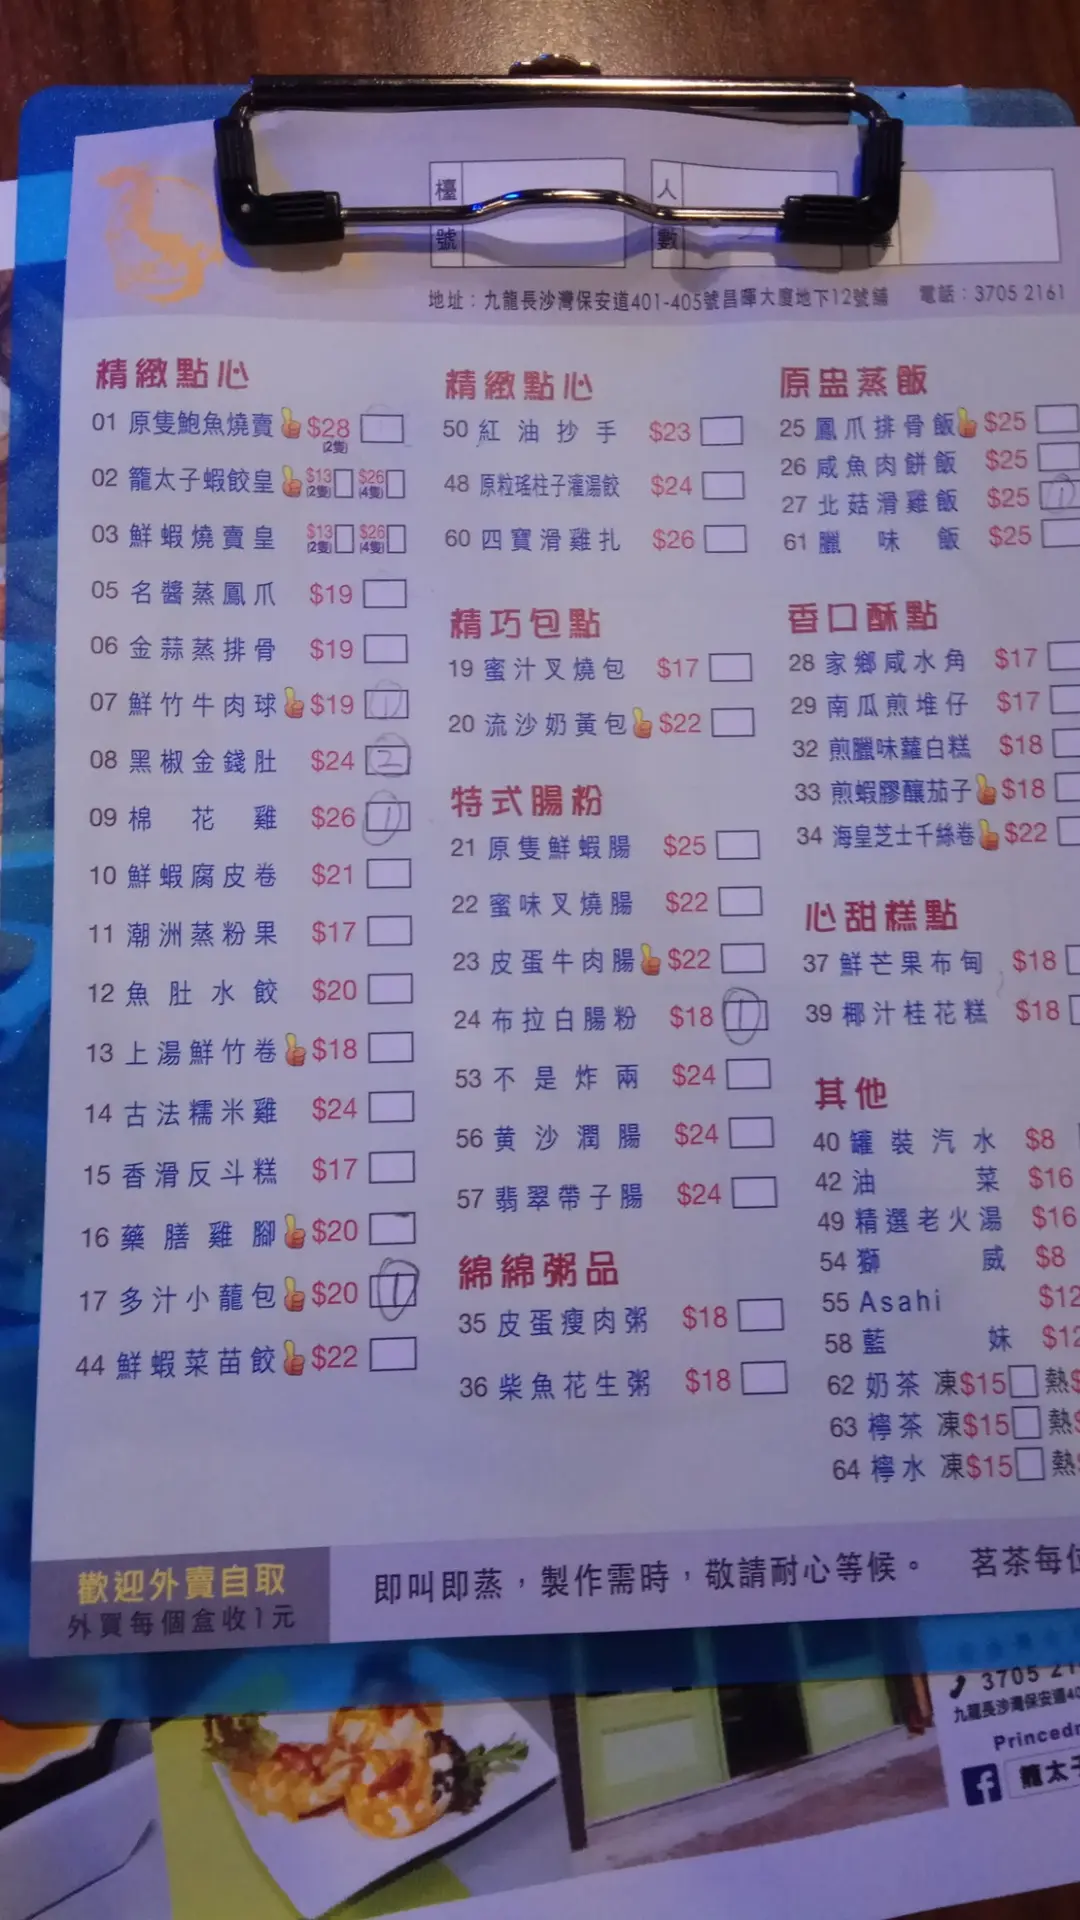 檯號
人數
單
地址：九龍長沙灣保安道401-405號昌暉大廈地下12號舖 電話：3705 2161
精緻點心
01 原隻鮑魚燒賣 $28 (2隻)
02 龍太子蝦餃皇 $13 (2隻) $26 (4隻)
03 鮮蝦燒賣皇 $13 (2隻) $26 (4隻)
05 名醬蒸鳳爪 $19
06 金蒜蒸排骨 $19
07 鮮竹牛肉球 $19 1
08 黑椒金錢肚 $24 2
09 棉花雞 $26 1
10 鮮蝦腐皮卷 $21
11 潮洲蒸粉果 $17
12 魚肚水餃 $20
13 上湯鮮竹卷 $18
14 古法糯米雞 $24
15 香滑反斗糕 $17
16 藥膳雞腳 $20
17 多汁小蘢包 $20 1
44 鮮蝦菜苗餃 $22
精緻點心
50 紅油抄手 $23
48 原粒瑤柱子灌湯餃 $24
60 四寶滑雞扎 $26
精巧包點
19 蜜汁叉燒包 $17
20 流沙奶黃包 $22
特式腸粉
21 原隻鮮蝦腸 $25
22 蜜味叉燒腸 $22
23 皮蛋牛肉腸 $22
24 布拉白腸粉 $18 1
53 不是炸兩 $24
56 黄沙潤腸 $24
57 翡翠帶子腸 $24
綿綿粥品
35 皮蛋瘦肉粥 $18
36 柴魚花生粥 $18
原盅蒸飯
25 鳳爪排骨飯 $25
26 咸魚肉餅飯 $25
27 北菇滑雞飯 $25 1
61 臘味飯 $25
香口酥點
28 家鄉咸水角 $17
29 南瓜煎堆仔 $17
32 煎臘味蘿白糕 $18
33 煎蝦膠釀茄子 $18
34 海皇芝士千絲卷 $22
心甜糕點
37 鮮芒果布甸 $18
39 椰汁桂花糕 $18
其他
40 罐裝汽水 $8
42 油菜 $16
49 精選老火湯 $16
54 獅威 $8
55 Asahi $12
58 藍妹 $12
62 奶茶 凍$15 熱$
63 檸茶 凍$15 熱$
64 檸水 凍$15 熱
歡迎外賣自取
外買每個盒收1元
即叫即蒸，製作需時，敬請耐心等候。 茗茶每位
3705 21
九龍長沙灣保安道40
Princedr
龍太子